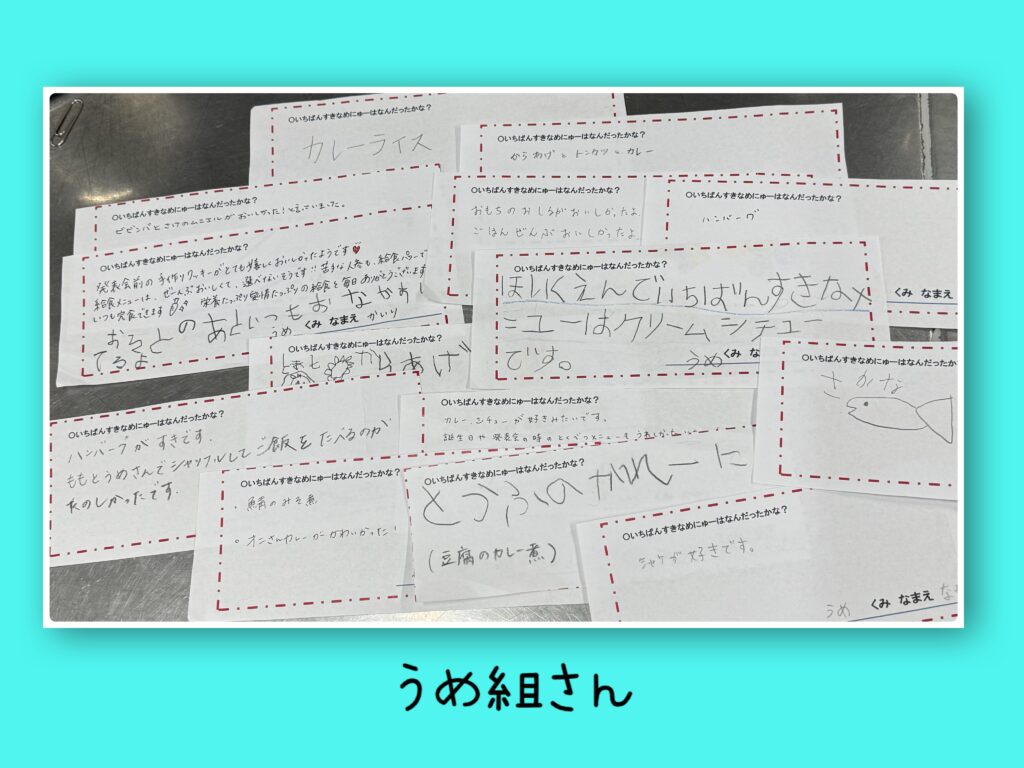 〇いちばんすきなめにゅーはなんだったかな？
カレーライス
〇いちばんすきなめにゅーはなんだったかな？
からあげとトンカツとカレー
〇いちばんすきなめにゅーはなんだったかな？
ビビンバとさけのムニエルがおいしかった！と言っていました。
〇いちばんすきなめにゅーはなんだったかな？
おもちのおしるがおいしかったよ
ごはんぜんぶおいしかったよ
〇いちばんすきなめにゅーはなんだったかな？
ハンバーグ
くみ なまえ
〇いちばんすきなめにゅーはなんだったかな？
発表会前の手作りクッキーがとても嬉しくおいしかったようです
給食メニューは、ぜーんぶおいしくて、選べないそうです!! 苦手な人参も、給食パワーで
いつも完食できます 栄養たっぷり愛情たっぷりの給食を毎日ありがとうございます
のあといつもおなかすい
てるよ
うめ くみ なまえ
〇いちばんすきなめにゅーはなんだったかな？
ほいくえんでいちばんすきなメ
ニューはクリームシチュー
です。
うめ くみ な
〇いちばんすきなめにゅーはなんだったかな？
からあげ
〇いちばんすきなめにゅーはなんだったかな？
さかな
〇いちばんすきなめにゅーはなんだったかな？
ハンバーグがすきです。
ももとうめさんでシャッフルしてご飯をたべるのが
たのしかったです。
〇いちばんすきなめにゅーはなんだったかな？
カレー、シチューが好きみたいです。
誕生日や発表会の時のとくべつメニューも
〇いちばんすきなめにゅーはなんだったかな？
・鯖のみそ煮
。オニさんカレーがかわいかった！
〇いちばんすきなめにゅーはなんだったかな？
とうふのかれーに
(豆腐のカレー煮)
〇いちばんすきなめにゅーはなんだったかな？
シャケが好きです。
うめ くみ なまえ
うめ組さん